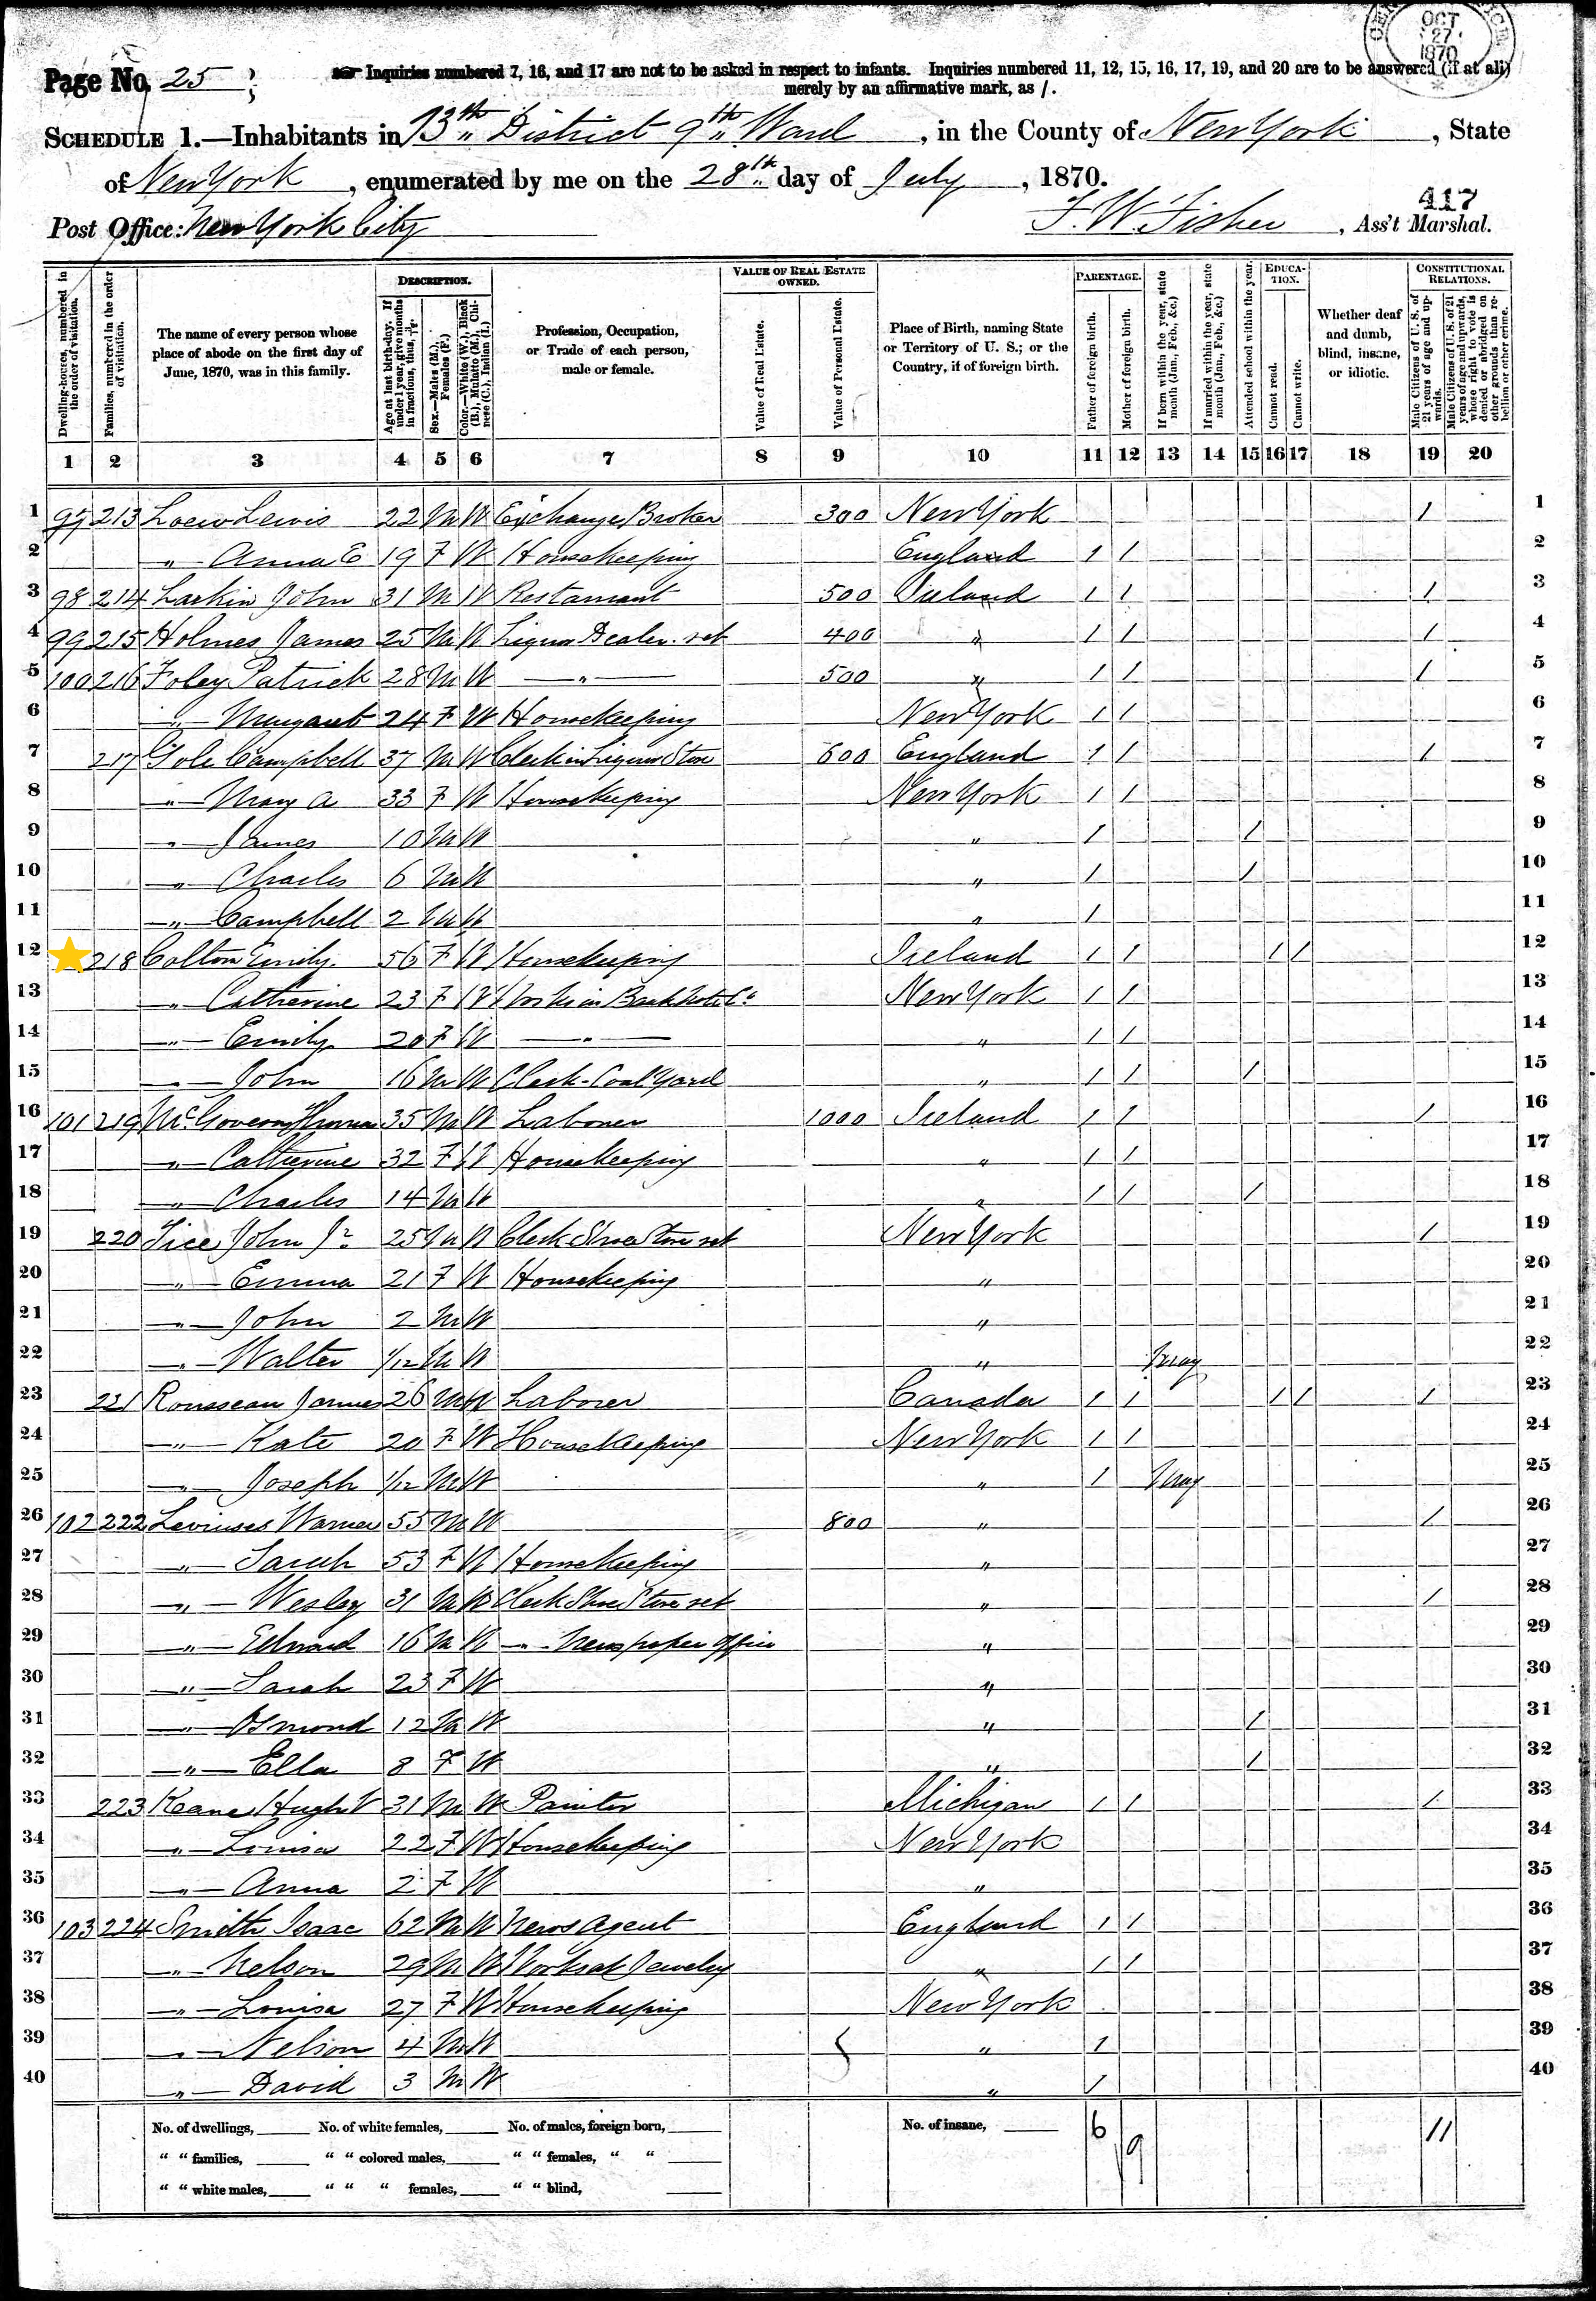 OCT
27
1870
Page No. 25
Inquiries numbered 7, 16, and 17 are not to be asked in respect to infants. Inquiries numbered 11, 12, 15, 16, 17, 19, and 20 are to be answered (if at all)
merely by an affirmative mark, as /.
SCHEDULE 1.—Inhabitants in 13th District 9th Ward, in the County of New York, State
of New York, enumerated by me on the 28th day of July, 1870.
417
Post Office: New York City F. W. Fisher, Ass't Marshal.
Dwelling-houses, numbered in the order of visitation.
Families, numbered in the order of visitation.
The name of every person whose place of abode on the first day of June, 1870, was in this family.
DESCRIPTION.
Age at last birth-day. If under 1 year, give months in fractions, thus, 3/12.
Sex.—Males (M.), Females (F.)
Color.—White (W.), Black (B.), Mulatto (M.), Chinese (C.), Indian (I.)
Profession, Occupation, or Trade of each person, male or female.
VALUE OF REAL ESTATE OWNED.
Value of Real Estate.
Value of Personal Estate.
Place of Birth, naming State or Territory of U. S.; or the Country, if of foreign birth.
PARENTAGE.
Father of foreign birth.
Mother of foreign birth.
If born within the year, state month (Jan., Feb., &c.)
If married within the year, state month (Jan., Feb., &c.)
Attended school within the year.
EDUCATION.
Cannot read.
Cannot write.
Whether deaf and dumb, blind, insane, or idiotic.
CONSTITUTIONAL RELATIONS.
Male Citizens of U. S. of 21 years of age and upwards.
Male Citizens of U. S. of 21 years of age and upwards, whose right to vote is denied or abridged on other grounds than rebellion or other crime.
1 2 3 4 5 6 7 8 9 10 11 12 13 14 15 16 17 18 19 20
1 97 213 Loew Lewis 22 M W Exchange Broker 300 New York / 1
2 " Anna E 19 F W Housekeeping England / / 2
3 98 214 Larkin John 31 M W Restaurant 500 Ireland / / / 3
4 99 215 Holmes James 25 M W Liquor Dealer ret 400 " / / / 4
5 100 216 Foley Patrick 28 M W " 500 " / / / 5
6 " Margaret 24 F W Housekeeping New York / / 6
7 217 Cole Campbell 37 M W Clerk in Liquor Store 600 England / / / 7
8 " Mary A 33 F W Housekeeping New York / / 8
9 " James 10 M W " / / 9
10 " Charles 6 M W " / / 10
11 " Campbell 2 M W " / 11
12 218 Colton Emily 56 F W Housekeeping Ireland / / / / 12
13 " Catherine 23 F W Works in Bank Note Co New York / / 13
14 " Emily 20 F W " " / / 14
15 " John 16 M W Clerk - Coal Yard " / / / 15
16 101 219 McGovern Thomas 35 M W Laborer 1000 Ireland / / / 16
17 " Catherine 32 F W Housekeeping " / / 17
18 " Charles 14 M W " / / / 18
19 220 Tice John Jr 25 M W Clerk Shoe Store ret New York / 19
20 " Emma 21 F W Housekeeping " 20
21 " John 2 M W " 21
22 " Walter 1/12 M W " May 22
23 221 Rousseau James 26 M W Laborer Canada / / / / / 23
24 " Kate 20 F W Housekeeping New York / / 24
25 " Joseph 1/12 M W " / May 25
26 102 222 Warner 55 M W 800 " / 26
27 " Sarah 53 F W Housekeeping " 27
28 " Wesley 31 M W Clerk Shoe Store ret " / 28
29 " Edward 16 M W " Newspaper Office " 29
30 " Sarah 23 F W " 30
31 " Osmond 12 M W " / 31
32 " Ella 8 F W " / 32
33 223 Keane Hugh V 31 M W Painter Michigan / / / 33
34 " Louisa 22 F W Housekeeping New York 34
35 " Anna 2 F W " 35
36 103 224 Smith Isaac 62 M W News Agent England / / 36
37 " Nelson 29 M W Works at Jewelry " / / 37
38 " Louisa 27 F W Housekeeping New York 38
39 " Nelson 4 M W " / 39
40 " David 3 M W " / 40
No. of dwellings, No. of white females, No. of males, foreign born, No. of insane, 6 9 11
" " families, " " colored males, " " females, " "
" " white males, " " " females, " " blind,